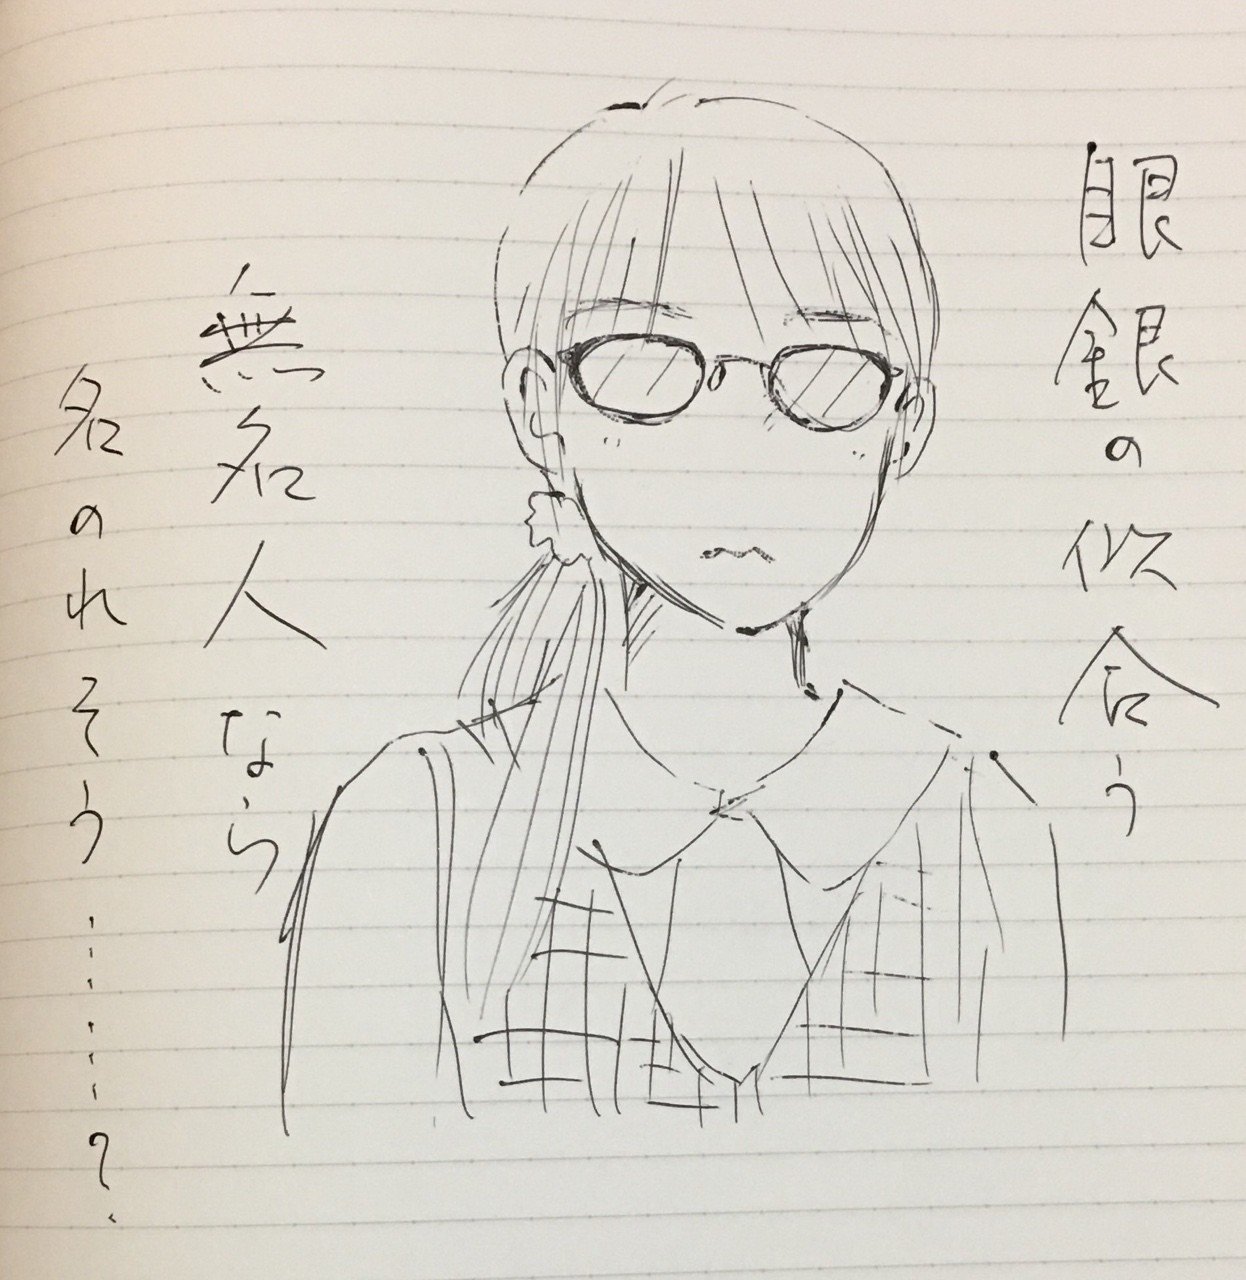 眼銀の似合う
無名人なら
名のれそう……?